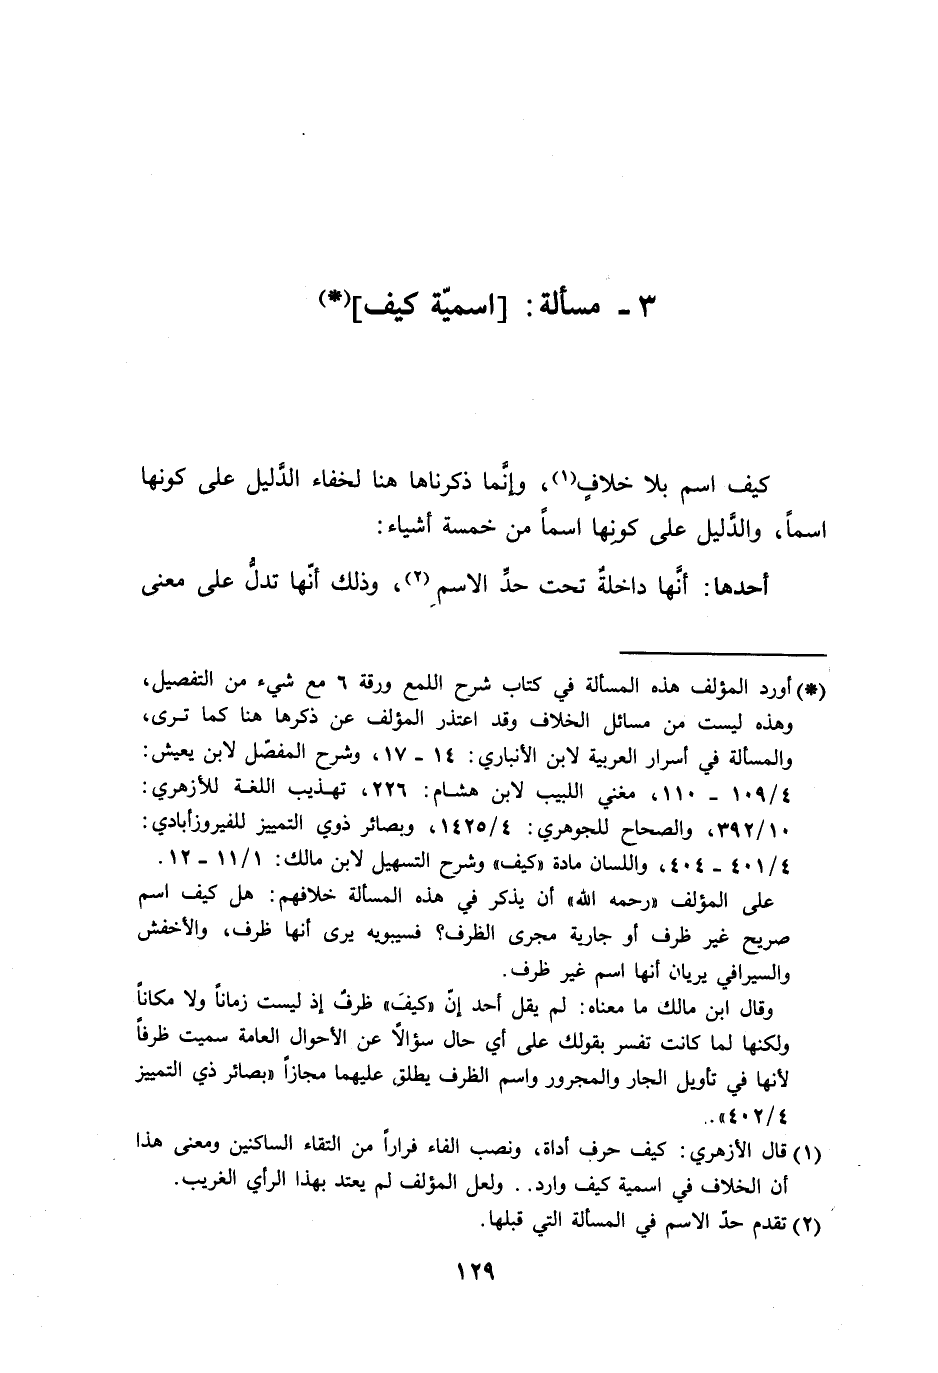 ٣ - مسألة: [اسميّة كيف](*)
كيف اسم بلا خلافٍ(١)، وإنَّما ذكرناها هنا لخفاء الدَّليل على كونها
اسماً، والدَّليل على كونِها اسماً من خمسة أشياء:
أحدها: أنَّها داخلةٌ تحت حدِّ الاسم(٢)، وذلك أنّها تدلُّ على معنى
(*) أورد المؤلف هذه المسألة في كتاب شرح اللمع ورقة ٦ مع شيء من التفصيل،
وهذه ليست من مسائل الخلاف وقد اعتذر المؤلف عن ذكرها هنا كما ترى،
والمسألة في أسرار العربية لابن الأنباري: ١٤ - ١٧، وشرح المفصّل لابن يعيش:
١٠٩/٤ - ١١٠، مغني اللبيب لابن هشام: ٢٢٦، تهذيب اللغة للأزهري:
٣٩٢/١٠، والصحاح للجوهري: ١٤٢٥/٤، وبصائر ذوي التمييز للفيروزأبادي:
٤٠١/٤ - ٤٠٤، واللسان مادة «كيف» وشرح التسهيل لابن مالك: ١١/١ - ١٢.
على المؤلف «رحمه الله» أن يذكر في هذه المسألة خلافهم: هل كيف اسم
صريح غير ظرف أو جارية مجرى الظرف؟ فسيبويه يرى أنها ظرف، والأخفش
والسيرافي يريان أنها اسم غير ظرف.
وقال ابن مالك ما معناه: لم يقل أحد إنّ «كيفَ» ظرفٌ إذ ليست زماناً ولا مكاناً
ولكنها لما كانت تفسر بقولك على أي حال سؤالاً عن الأحوال العامة سميت ظرفاً
لأنها في تأويل الجار والمجرور واسم الظرف يطلق عليهما مجازاً «بصائر ذي التمييز
٤٠٢/٤»..
(١) قال الأزهري: كيف حرف أداة، ونصب الفاء فراراً من التقاء الساكنين ومعنى هذا
أن الخلاف في اسمية كيف وارد.. ولعل المؤلف لم يعتد بهذا الرأي الغريب.
(٢) تقدم حدّ الاسم في المسألة التي قبلها.
١٢٩